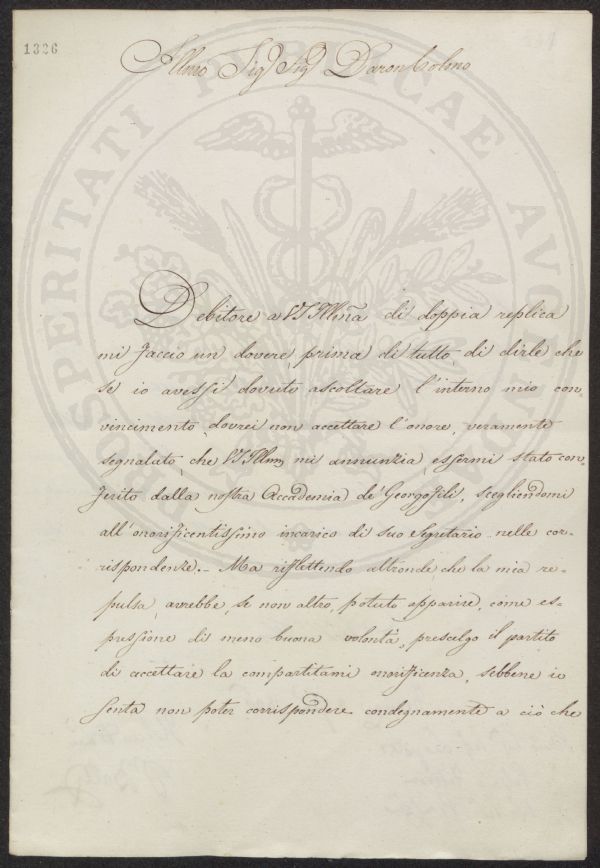 1326
Illmo Sig.r Sig.r Pron Colmo
Debitore a VS Illma di doppia replica
mi faccio un dovere, prima di tutto, di dirle che
se io avessi dovuto ascoltare l'interno mio con-
vincimento, dovrei non accettare l'onore, veramente
segnalato che VS Illma mi annunzia, essermi stato con-
ferito dalla nostra Accademia de' Georgofili, scegliendomi
all'onorificentissimo incarico di suo Segretario nelle cor-
rispondenze. Ma riflettendo altronde che la mia re-
pulsa, avrebbe, se non altro, potuto apparire, come es-
pressione di meno buona volontà, prescelgo il partito
di accettare la compartitami onorificenza, sebbene io
senta non poter corrispondere condegnamente a ciò che
PROSPERITATI PUBLICAE AUGENDAE